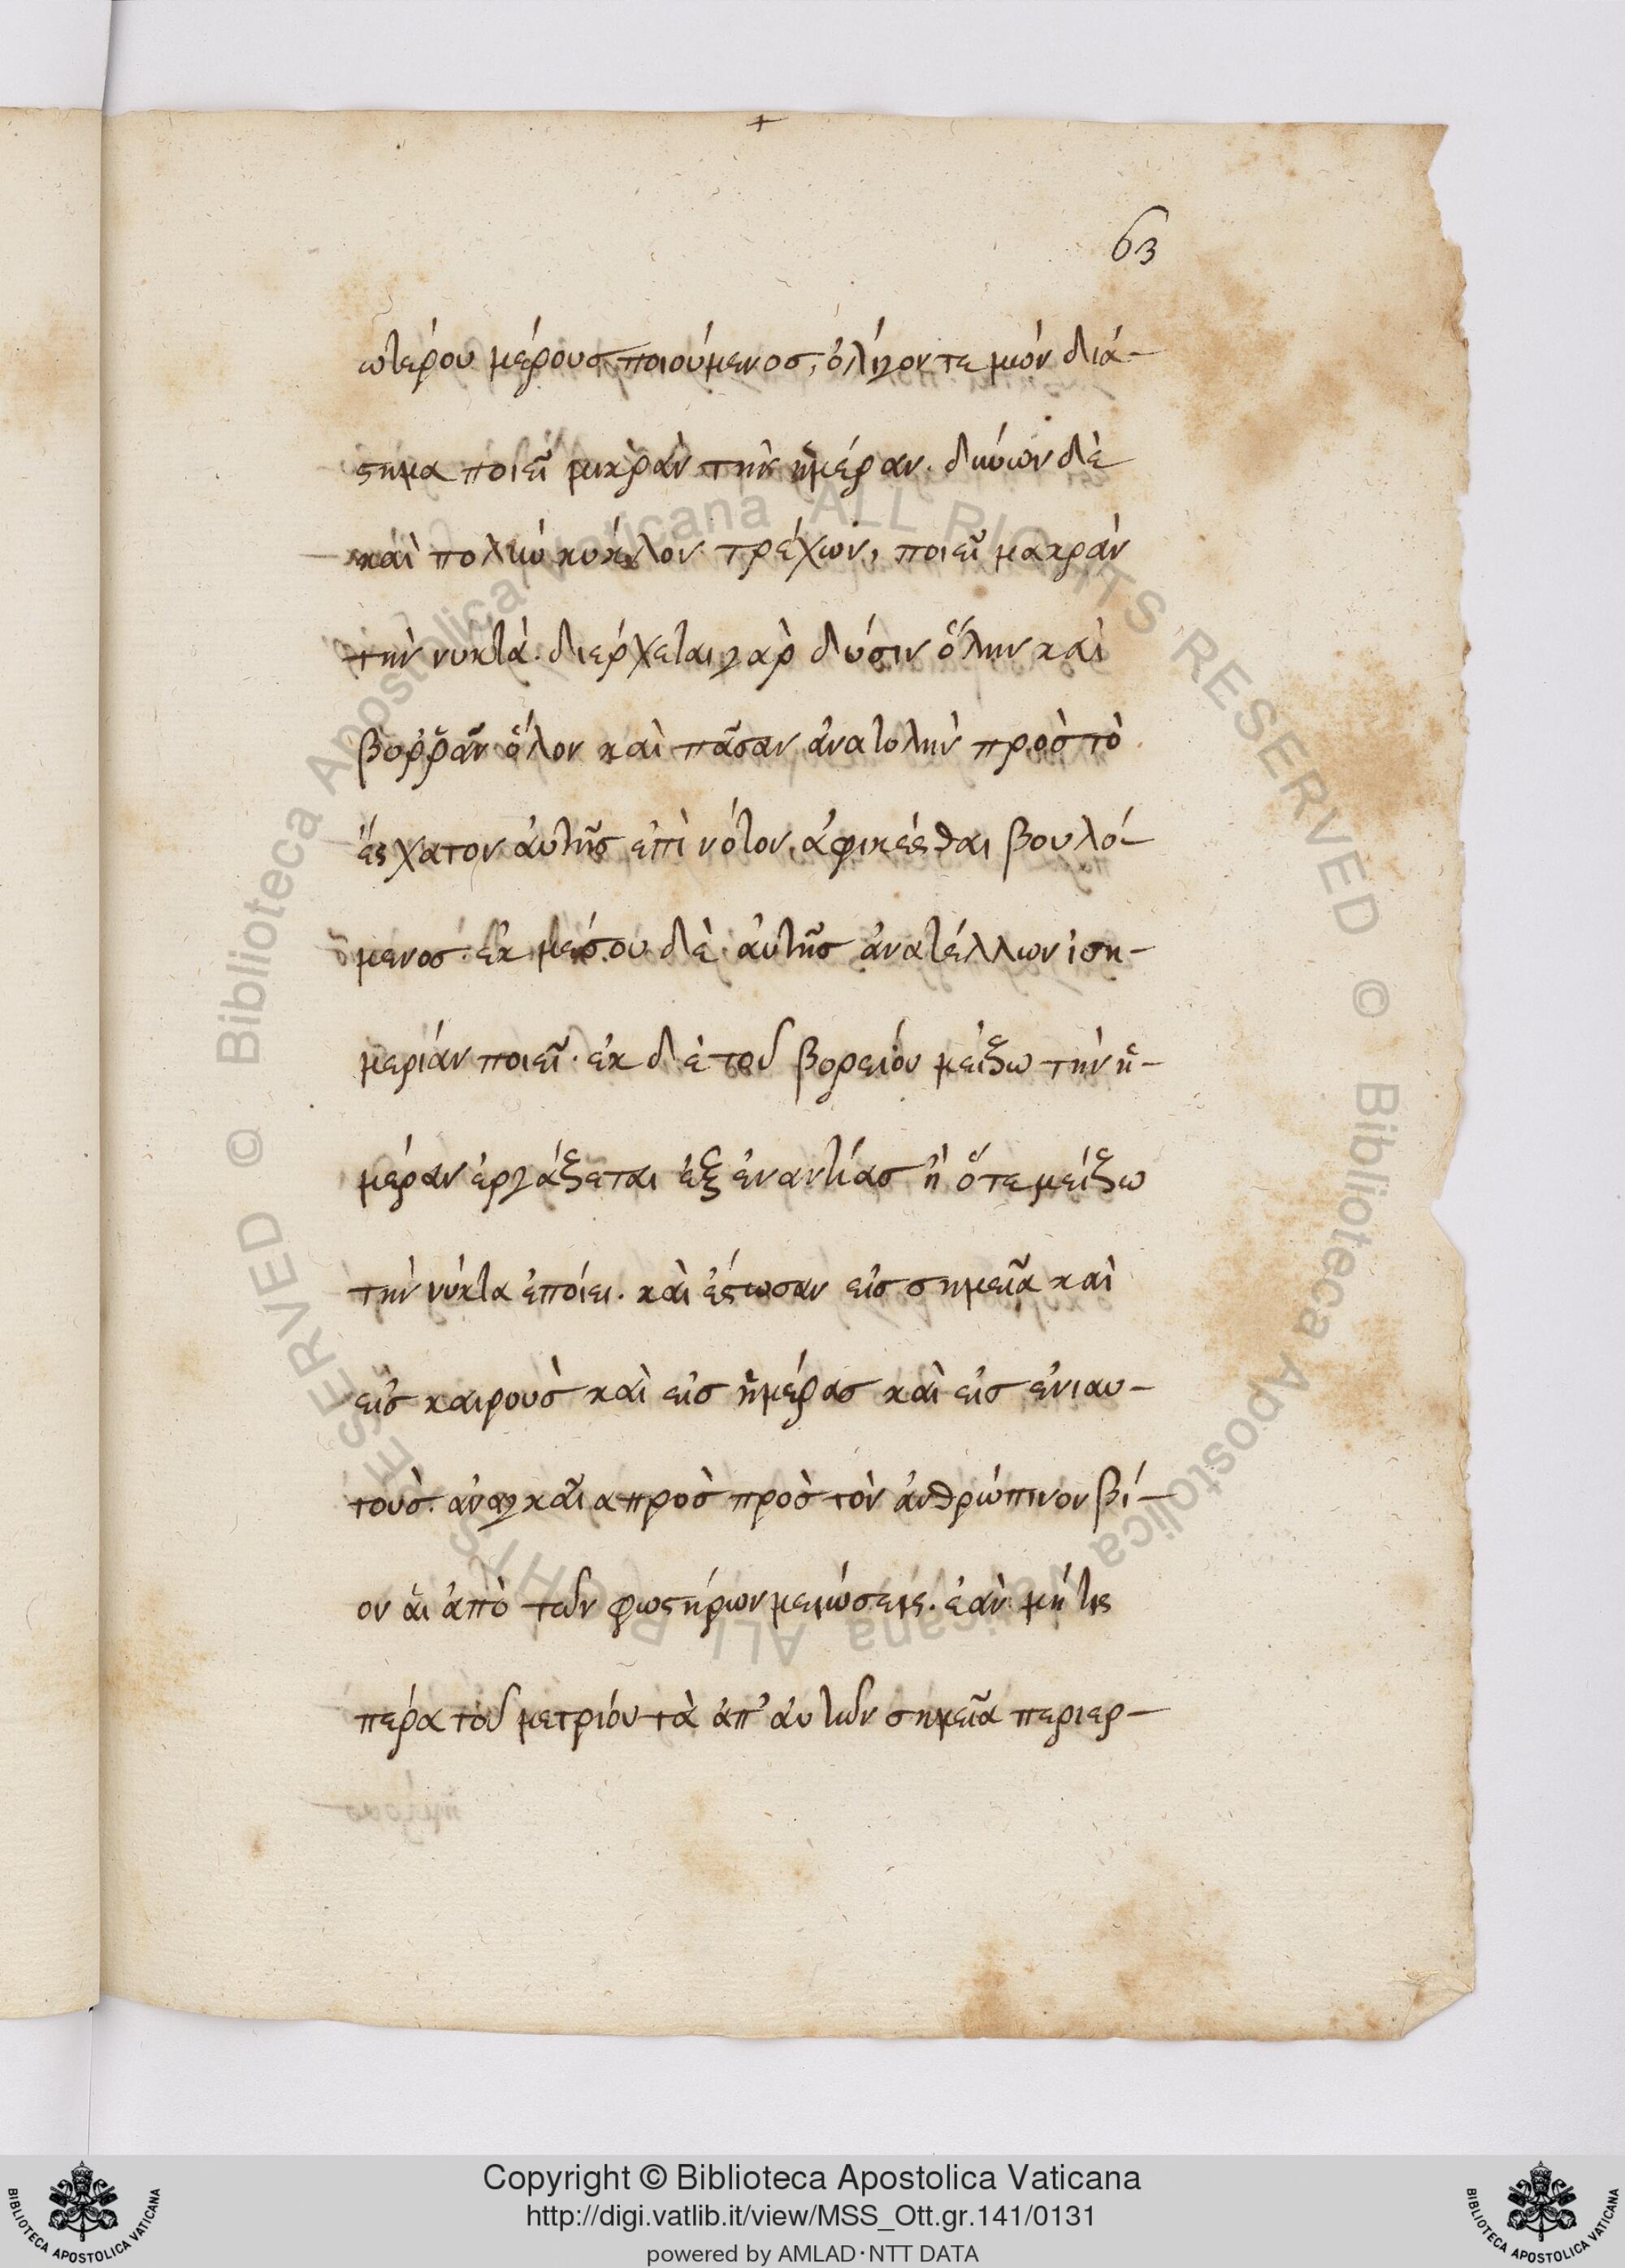 +
63
ωτέρου μέρους ποιούμενος, ὀλίγον τεμὼν διά-
στημα ποιεῖ μικρὰν τὴν ἡμέραν. δύνων δὲ
καὶ πολὺν κύκλον τρέχων, ποιεῖ μακρὰν
τὴν νύκτα. διέρχεται γὰρ δύσιν ὅλην καὶ
βοῤῥᾶν ὅλον καὶ πᾶσαν ἀνατολὴν πρὸς τὸ
ἔσχατον αὐτῆς ἐπὶ νότον, ἀφικέσθαι βουλό-
μενος. ἐκ μέσου δὲ αὐτῆς ἀνατέλλων ἰση-
μερίαν ποιεῖ. ἐκ δὲ τοῦ βορείου μείζω τὴν ἡ-
μέραν ἐργάζεται ἐξ ἐναντίας ἢ ὅτε μείζω
τὴν νύκτα ἐποίει. καὶ ἔστωσαν εἰς σημεῖα καὶ
εἰς καιροὺς καὶ εἰς ἡμέρας καὶ εἰς ἐνιαυ-
τούς. ἀναγκαῖαι πρὸς πρὸς τὸν ἀνθρώπινον βί-
ον αἱ ἀπὸ τῶν φωστήρων μειώσεις. ἐὰν μή τις
πέρα τοῦ μετρίου τὰ ἀπ' αὐτῶν σημεῖα περιερ-
Copyright © Biblioteca Apostolica Vaticana
http://digi.vatlib.it/view/MSS_Ott.gr.141/0131
powered by AMLAD·NTT DATA
BIBLIOTECA APOSTOLICA VATICANA
BIBLIOTECA APOSTOLICA VATICANA
© Biblioteca Apostolica Vaticana ALL RIGHTS RESERVED
© Biblioteca Apostolica Vaticana ALL RIGHTS RESERVED